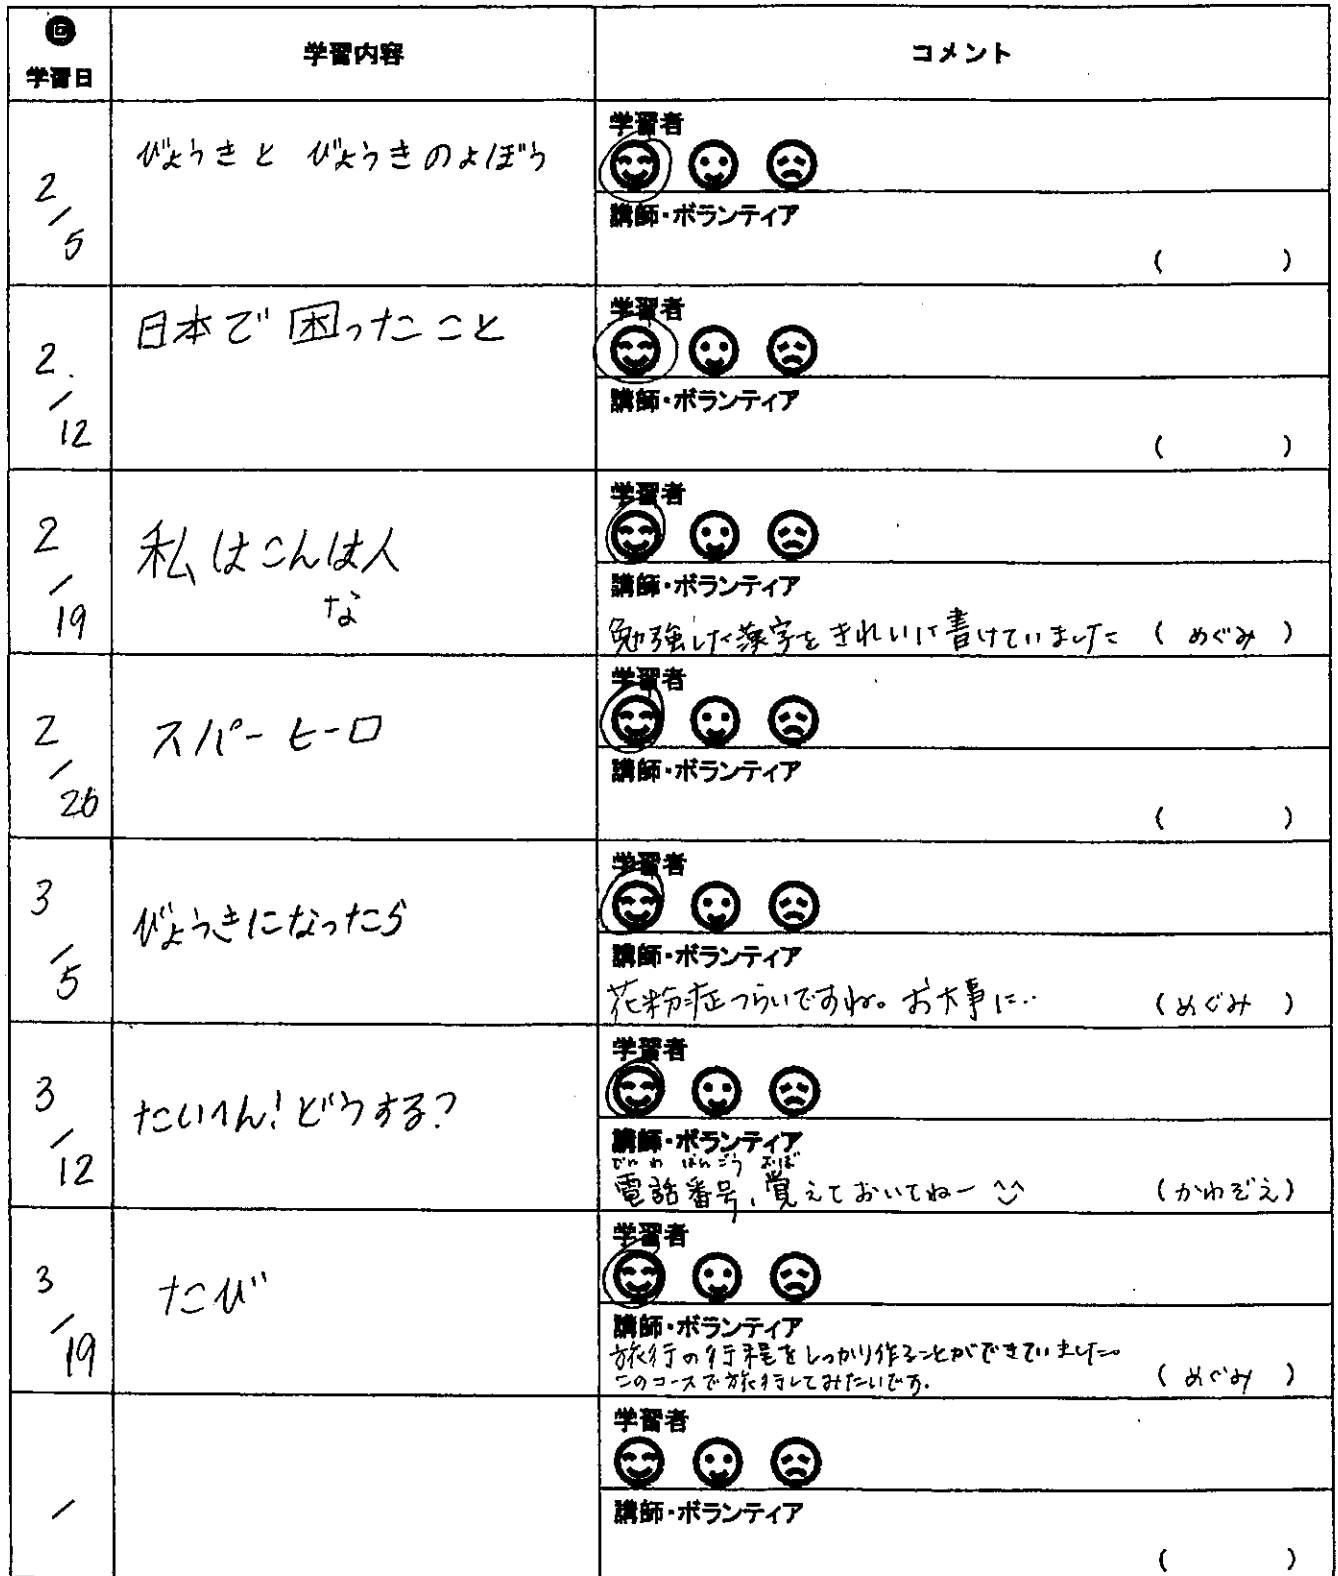 回
学習日 学習内容 コメント
2/5
びょうきと びょうきのよぼう
学習者
講師・ボランティア
( )
2/12
日本で困ったこと
学習者
講師・ボランティア
( )
2/19
私はこんは人
な
学習者
講師・ボランティア
勉強した漢字をきれいに書けていました ( めぐみ )
2/26
スパーヒーロ
学習者
講師・ボランティア
( )
3/5
びょうきになったら
学習者
講師・ボランティア
花粉症つらいですね。お大事に‥ ( めぐみ )
3/12
たいへん!どうする?
学習者
講師・ボランティア
でんわ ばんごう おぼ
電話番号、覚えておいてねー ^^ ( かわぞえ )
3/19
たび
学習者
講師・ボランティア
旅行の行程をしっかり作ることができていました。
このコースで旅行してみたいです。 ( めぐみ )
/
学習者
講師・ボランティア
( )